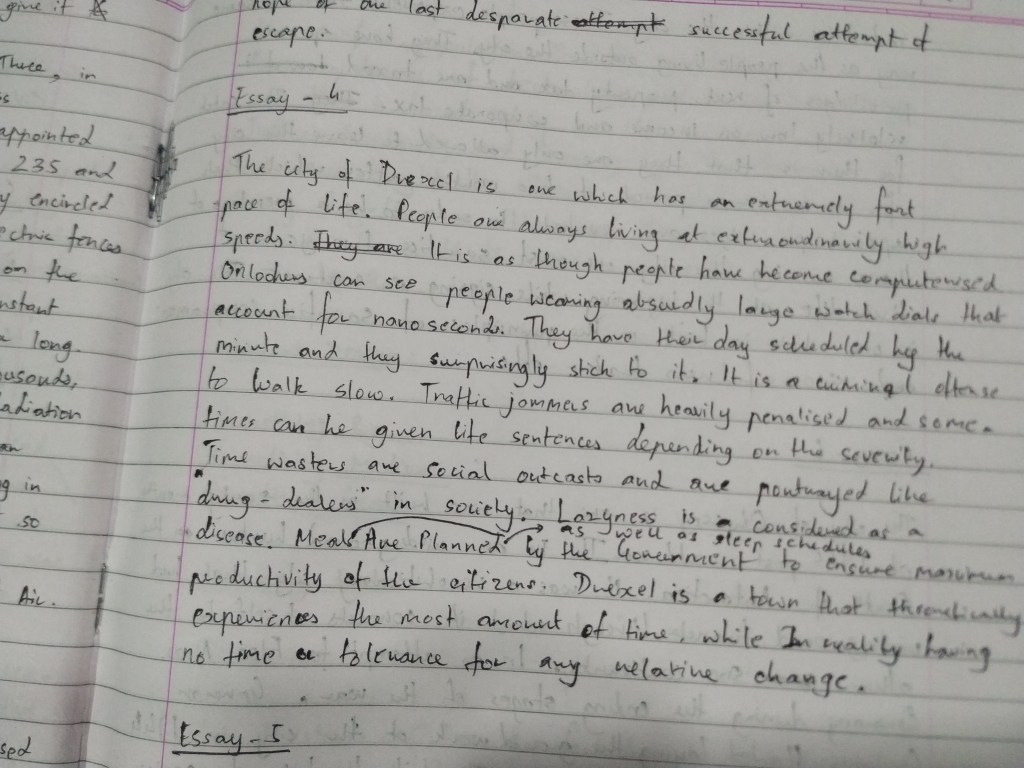 give it
Three, in
appointed
235 and
encircled
fences
on the
long
Air.
hope of one last desparate attempt successful attempt of
escape.
Essay - 4
The city of Drexel is one which has an extremely fast
pace of life. People are always living at extraordinarily high
speeds. They are It is as though people have become computerised
Onlookers can see people wearing absurdly large watch dials that
account for nano seconds. They have their day scheduled by the
minute and they surprisingly stick to it. It is a criminal offense
to walk slow. Traffic jammers are heavily penalised and some-
times can be given life sentences depending on the severity.
Time wasters are social outcasts and are portrayed like
"drug-dealers" in society. Lazyness is considered as a
disease. Meals Are Planned as well as sleep schedules by the Government to ensure maximum
productivity of the citizens. Drexel is a town that threoretically
experiences the most amount of time, while In reality having
no time or tolerance for any relative change.
Essay - 5